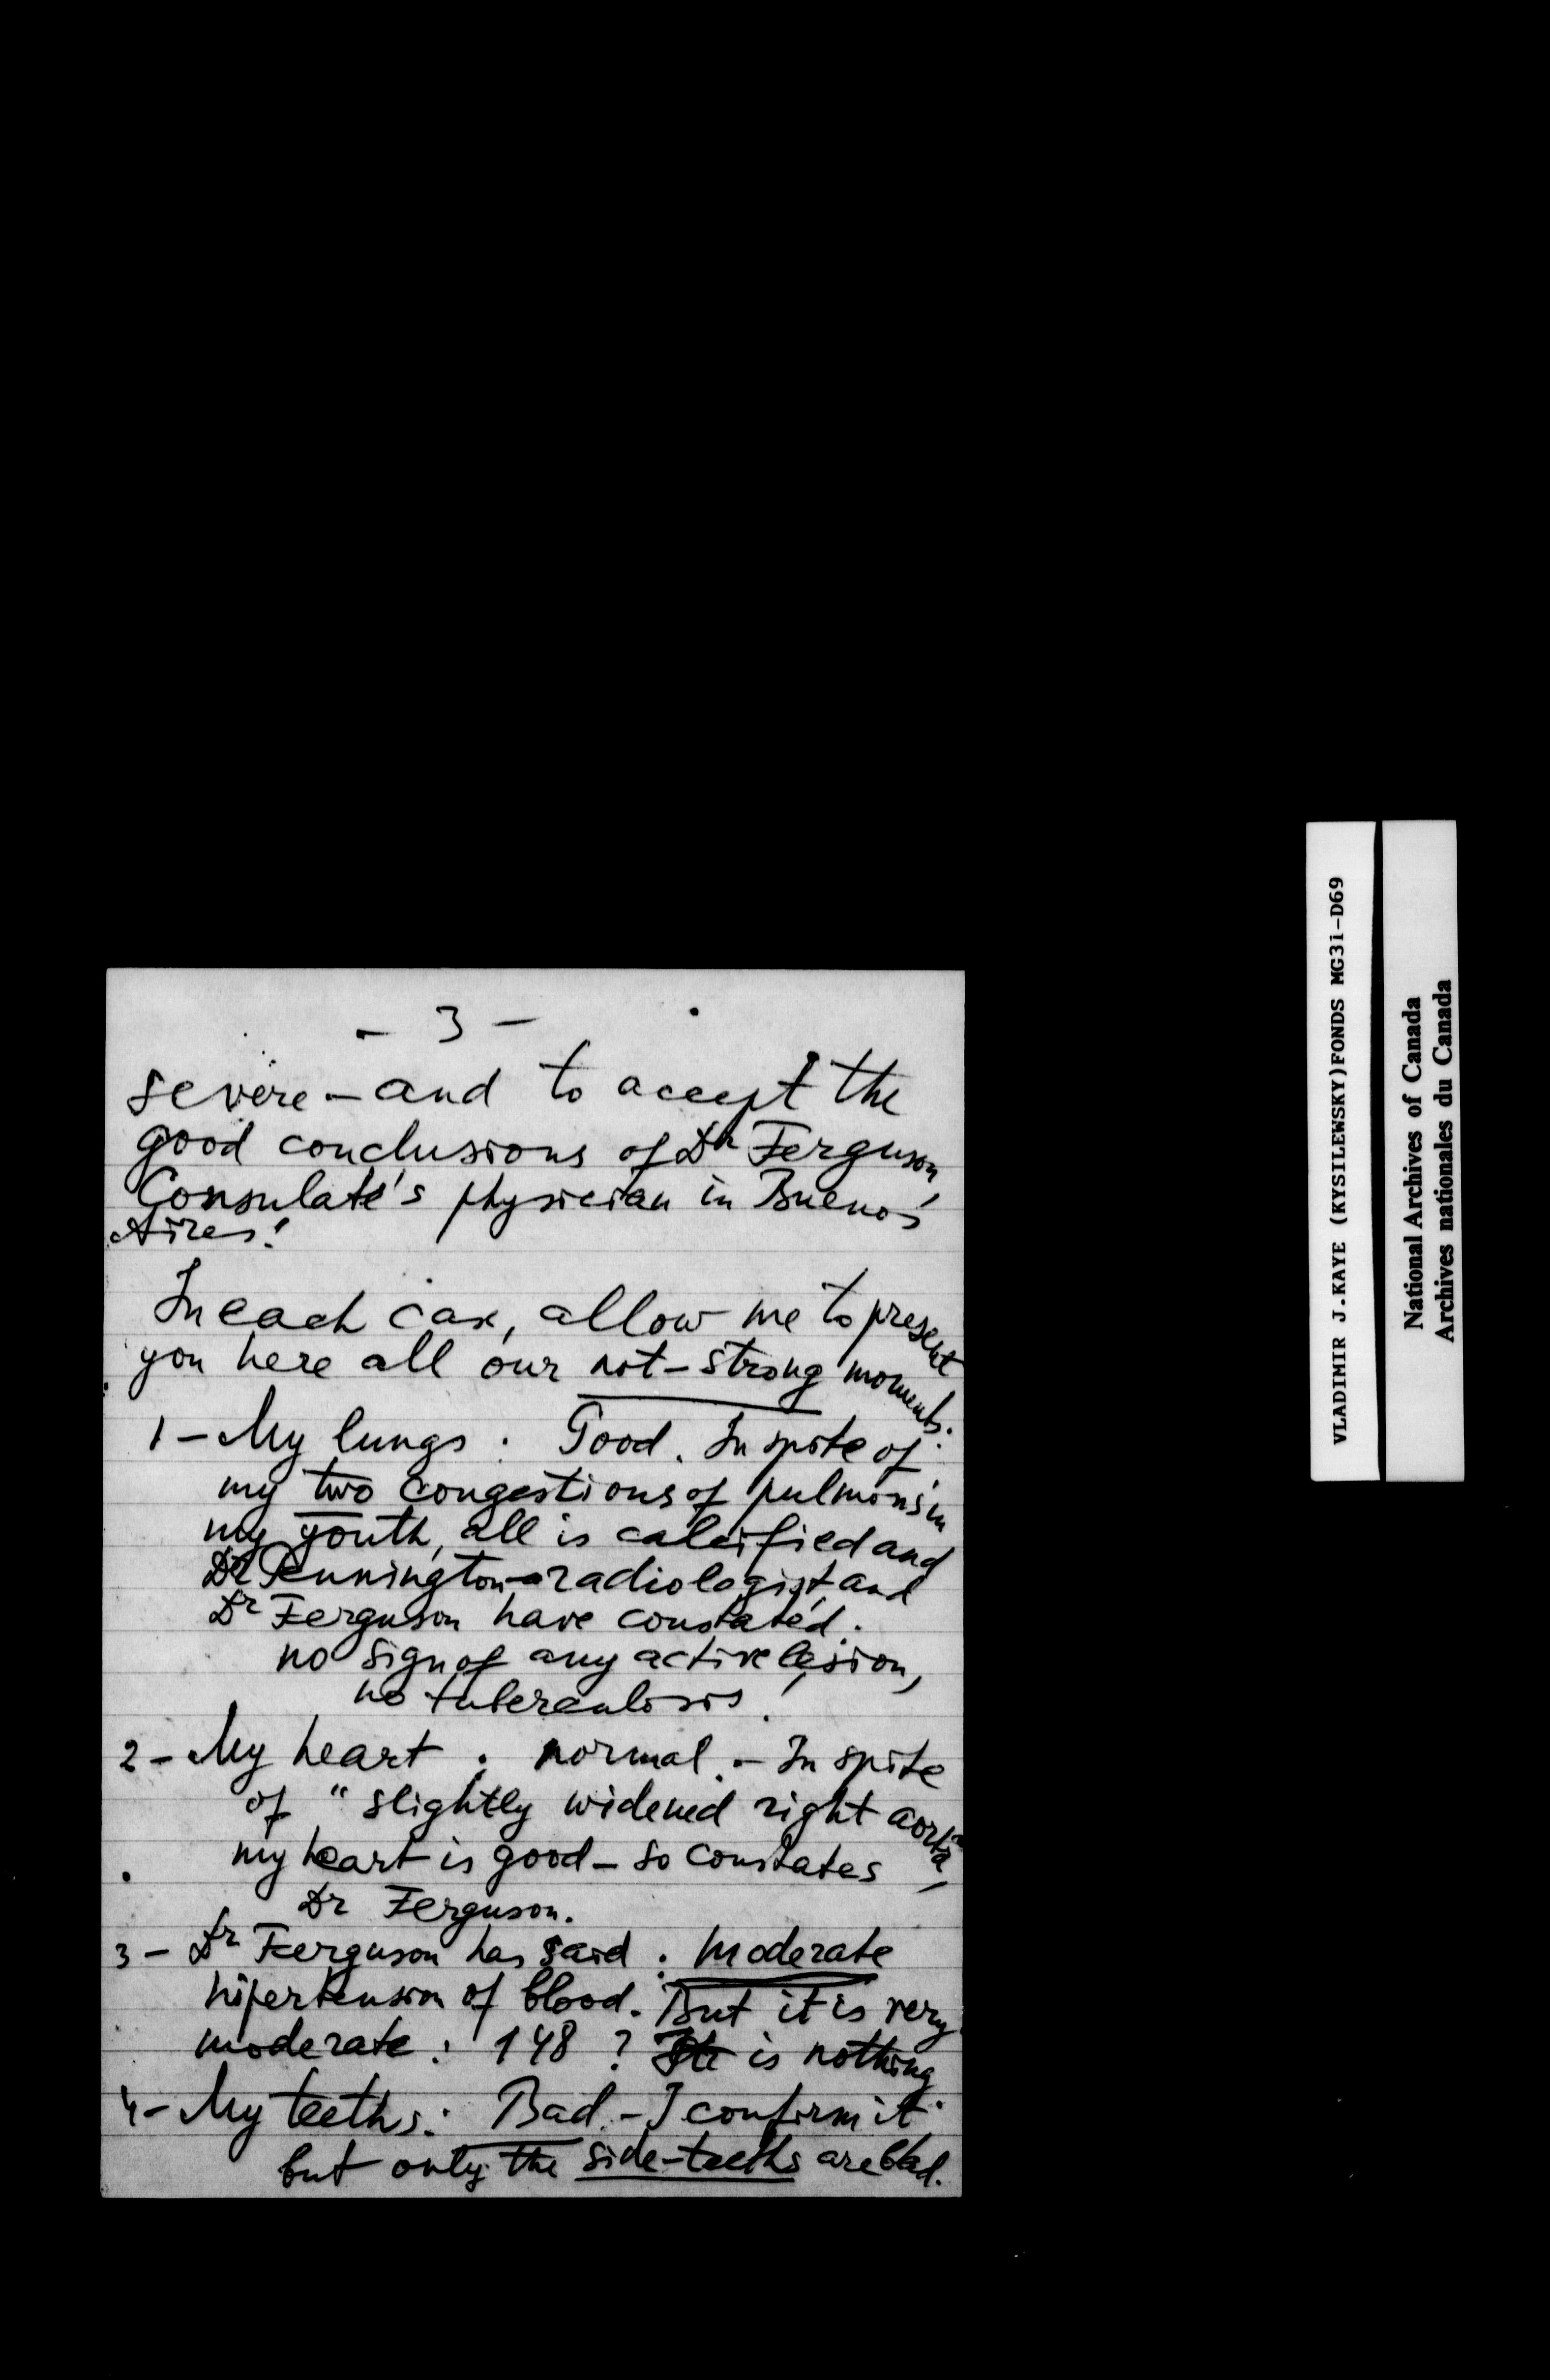 - 3 -
severe - and to accept the
good conclusions of Dr Ferguson,
Consulate's physician in Buenos
Aires!
In each case, allow me to present
you here all our not-strong moments:
1 - My lungs : Good. In spite of
my two congestions of pulmons in
my youth, all is calcified and
Dr Pennington - radiologist, and
Dr Ferguson have constated:
no sign of any active lesion,
no tuberculosis!
2 - My heart : normal. - In spite
of "slightly widened right aorta,
my heart is good - so constates
Dr Ferguson.
3 - Dr Ferguson has said : moderate
hipertension of blood. But it is very
moderate : 148 ? It is nothing
4 - My teeths : Bad. - I confirm it.
but only the side-teeths are bad.
VLADIMIR J.KAYE (KYSILEWSKY)FONDS MG31-D69
National Archives of Canada
Archives nationales du Canada